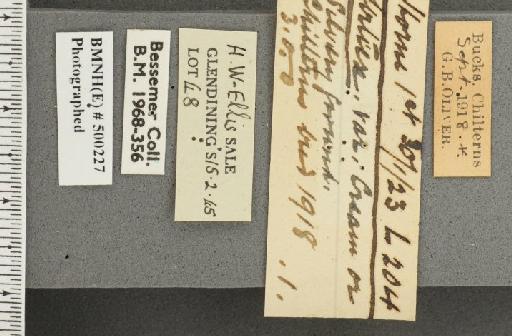 BMNH(E) # 500227
Photographed
Bessemer Coll.
B.M. 1968-356
H. W-Ellis SALE
GLENDINING'S 15-2-45
LOT 48
1st 20/1/23 L 204
var: Cream or
Silvery ground.
Chilterns 1918 . 1 .
3.0.0
Bucks. Chilterns
Sept. 1918.
G. B. OLIVER.